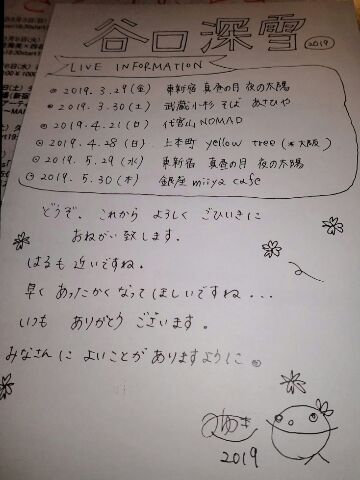 谷口深雪 2019
LIVE INFORMATION
2019.3.29(金) 東新宿 真昼の月 夜の太陽
2019.3.30(土) 武蔵小杉 そば あさひや
2019.4.21(日) 代官山 NOMAD
2019.4.28(日) 上本町 yellow tree (大阪)
2019.5.29(水) 東新宿 真昼の月 夜の太陽
2019.5.30(木) 銀座 miiya cafe
どうぞ、これから よろしく ごひいきに
おねがい致します。
はるも 近いですね。
早く あったかく なって ほしいですね...
いつも ありがとう ございます。
みなさんに よいことが ありますように
みゆき
2019